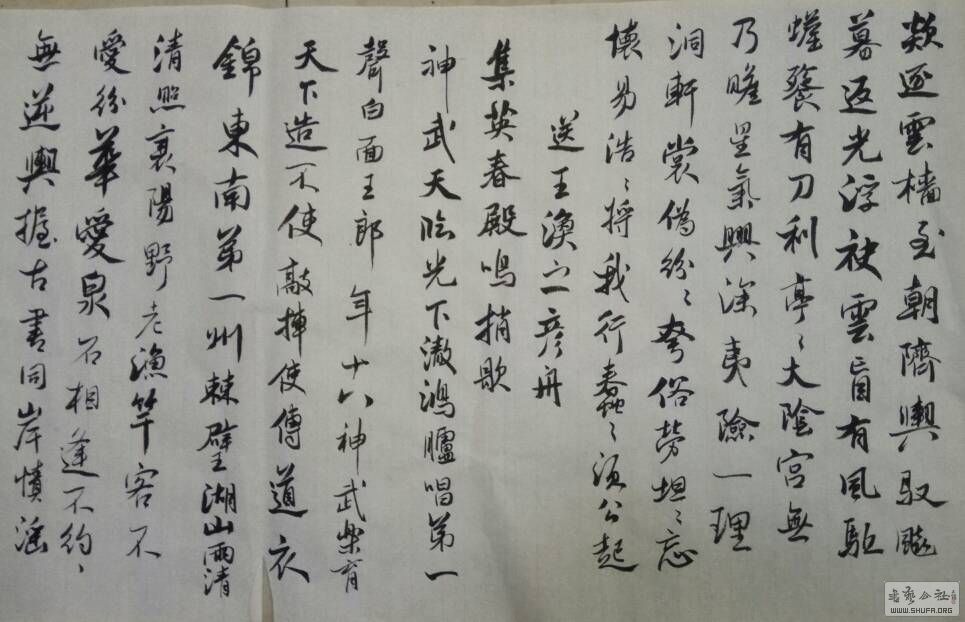 欻逐雲檣至朝隮輿馭飈
暮返光浮袂雲盲有風駈
蟾餮有刀利亭〻大陰宮無
乃瞻星氣興深夷險一理
洞軒裳偽紛〻夸俗勞坦〻忘
懷易浩〻將我行蠢〻須公起
送王渙之彥舟
集英春殿鳴捎歇
神武天臨光下澈鴻臚唱第一
聲白面王郎年十八神武樂育
天下造不使敲抨使傳道衣
錦東南第一州棘璧湖山兩清
清照襄陽野老漁竿客不
愛紛華愛泉石相逢不約〻
無逆輿握古書同岸幘淫
WWW.SHUFA.ORG